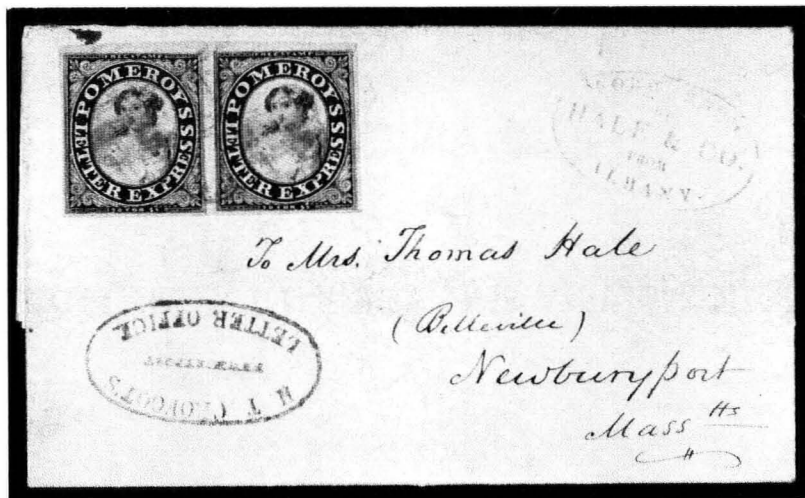 POMEROYS LETTER EXPRESS
POMEROYS LETTER EXPRESS
HALE & CO.
FROM
ALBANY.
To Mrs. Thomas Hale
(Belleville)
Newburyport
Mass tts
LETTER OFFICE,